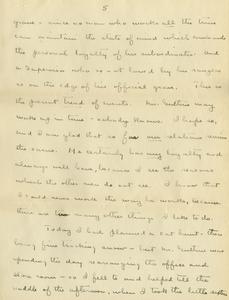 5
grave - since no man who works all the time
can maintain the state of mind which commands
the personal loyalty of his subordinates. And
a Supervisor who is not loved by his rangers
is on the edge of his official grave. This is
the present trend of events. Mr. Guthrie may
wake up in time - nobody knows. I hope so,
and I am glad that so few are
the same. He certainly has my loyalty and
always will have, because I see the reasons
which the other men do not see. I know that
I could never work the way he works, because
there are too many other things I like to do.
Today I had planned a cat hunt - the
being fine tracking snow - but Mr. Guthrie was
spending the day rearranging the office and
store room - so I fell to and helped till the
middle of the afternoon, when I took the little sister